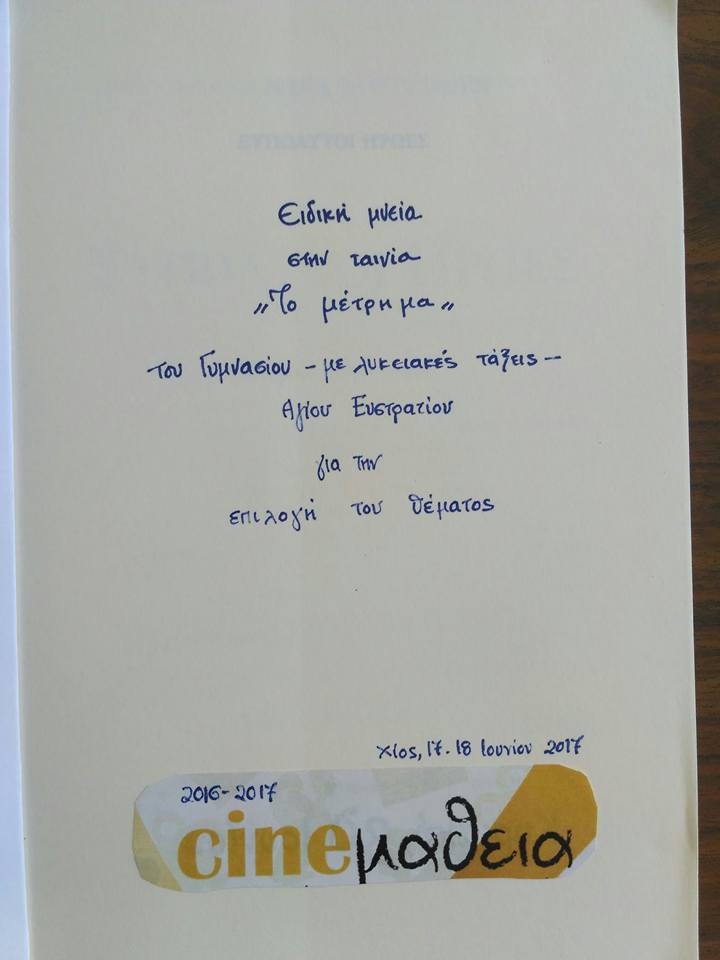 Ειδική μνεία
στην ταινία
„Το μέτρημα„
του Γυμνασίου – με λυκειακές τάξεις –
Αγίου Ευστρατίου
για την
επιλογή του θέματος
Χίος, 17-18 Ιουνίου 2017
2016-2017
cineμαθεια